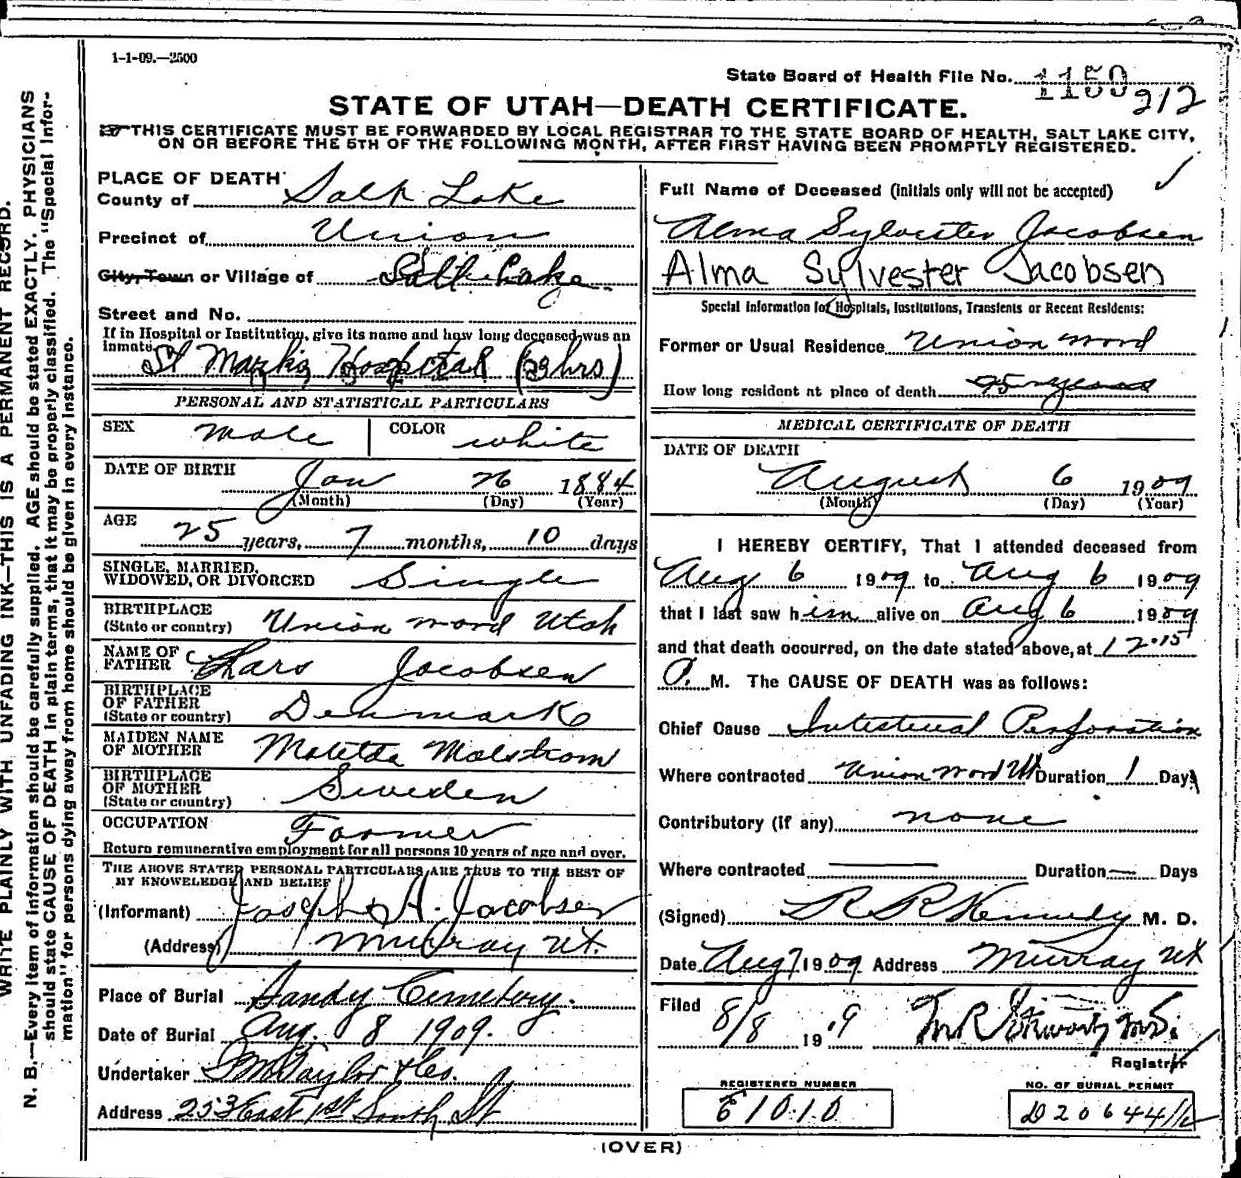 1-1-09.—2500
State Board of Health File No. 1150
212
STATE OF UTAH—DEATH CERTIFICATE.
☞THIS CERTIFICATE MUST BE FORWARDED BY LOCAL REGISTRAR TO THE STATE BOARD OF HEALTH, SALT LAKE CITY,
ON OR BEFORE THE 5TH OF THE FOLLOWING MONTH, AFTER FIRST HAVING BEEN PROMPTLY REGISTERED.
WRITE PLAINLY WITH UNFADING INK—THIS IS A PERMANENT RECORD.
N. B.—Every item of information should be carefully supplied. AGE should be stated EXACTLY. PHYSICIANS
should state CAUSE OF DEATH in plain terms, that it may be properly classified. The "Special Infor-
mation" for persons dying away from home should be given in every instance.
PLACE OF DEATH
County of Salt Lake
Precinct of Union
City, Town or Village of Salt Lake
Street and No.
If in Hospital or Institution, give its name and how long deceased was an
inmate. St Marks Hospital (39 hrs)
PERSONAL AND STATISTICAL PARTICULARS
SEX Male COLOR white
DATE OF BIRTH Jan 26 1884
(Month) (Day) (Year)
AGE 25 years, 7 months, 10 days
SINGLE, MARRIED,
WIDOWED, OR DIVORCED Single
BIRTHPLACE
(State or country) Union Word Utah
NAME OF
FATHER Lars Jacobsen
BIRTHPLACE
OF FATHER
(State or country) Denmark
MAIDEN NAME
OF MOTHER Matilda Malstrom
BIRTHPLACE
OF MOTHER
(State or country) Sweden
OCCUPATION Farmer
Return remunerative employment for all persons 10 years of age and over.
THE ABOVE STATED PERSONAL PARTICULARS ARE TRUE TO THE BEST OF
MY KNOWELEDGE AND BELIEF
(Informant) Joseph A. Jacobsen
(Address) Murray Ut.
Place of Burial Sandy Cemetery.
Date of Burial Aug. 8 1909.
Undertaker S M Taylor & Co.
Address 253 East 1st South St
Full Name of Deceased (initials only will not be accepted)
Alma Sylvester Jacobsen
Alma Sylvester Jacobsen
Special Information for Hospitals, Institutions, Transients or Recent Residents:
Former or Usual Residence Union Word
How long resident at place of death 25 years
MEDICAL CERTIFICATE OF DEATH
DATE OF DEATH
August 6 1909
(Month) (Day) (Year)
I HEREBY CERTIFY, That I attended deceased from
Aug 6 1909 to Aug 6 1909
that I last saw him alive on Aug 6 1909
and that death occurred, on the date stated above, at 12.15
M. The CAUSE OF DEATH was as follows:
Chief Cause Intestinal Perforation
Where contracted Union Word Ut Duration 1 Days
Contributory (if any) none
Where contracted — Duration — Days
(Signed) R R Kennedy M. D.
Date Aug 7 1909 Address Murray Ut
Filed 8/8 19.9 M.D.
Registrar
REGISTERED NUMBER
E1010
NO. OF BURIAL PERMIT
D20644/12
(OVER)